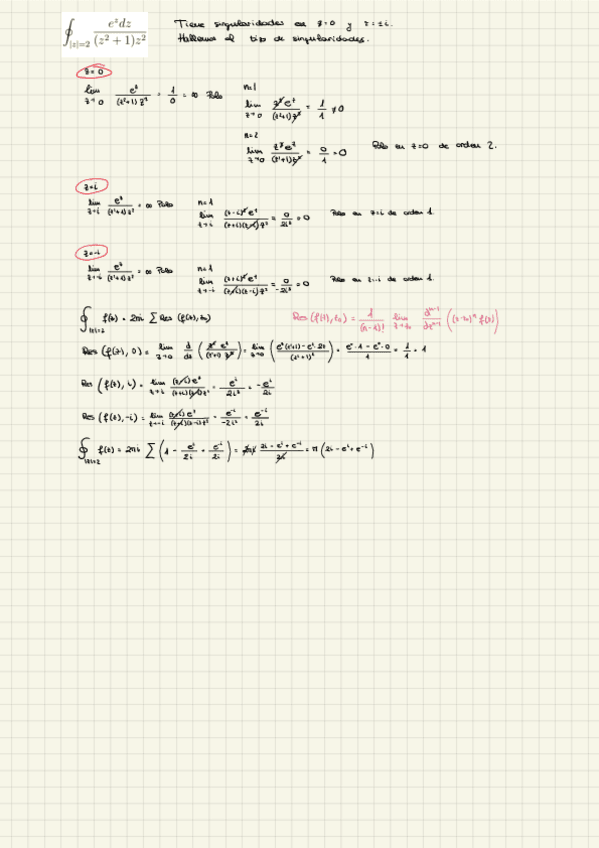 ∮_{|z|=2} e^z dz / ((z^2 + 1) z^2) Tiene singularidades en z=0 y z=±i.
Hallemos el tipo de singularidades.
z=0
lim_{z→0} e^z / ((z^2+1) z^2) = 1/0 = ∞ Polo
n=1
lim_{z→0} z^2 e^z / ((z^2+1) z^2) = 1/1 ≠ 0
n=2
lim_{z→0} z^3 e^z / ((z^2+1) z^2) = 0/1 = 0 Polo en z=0 de orden 2.
z=i
lim_{z→i} e^z / ((z^2+1) z^2) = ∞ Polo
n=1
lim_{z→i} (z-i)^2 e^z / ((z+i)(z-i) z^2) = 0/2i^3 = 0 Polo en z=i de orden 1.
z=-i
lim_{z→-i} e^z / ((z^2+1) z^2) = ∞ Polo
n=1
lim_{z→-i} (z+i)^2 e^z / ((z+i)(z-i) z^2) = 0/-2i^3 = 0 Polo en z=-i de orden 1.
∮_{|z|=2} f(z) = 2πi ∑ Res (f(z), z_0) Res (f(z), z_0) = 1/(n-1)! lim_{z→z_0} d^{n-1}/dz^{n-1} ((z-z_0)^n f(z))
Res (f(z), 0) = lim_{z→0} d/dz (z^2 e^z / ((z^2+1) z^2)) = lim_{z→0} ((e^z (z^2+1) - e^z · 2z) / (z^2+1)^2) = (e^0 · 1 - e^0 · 0)/1 = 1/1 = 1
Res (f(z), i) = lim_{z→i} (z-i) e^z / ((z+i)(z-i) z^2) = e^i / 2i^3 = -e^i / 2i
Res (f(z), -i) = lim_{z→-i} (z+i) e^z / ((z+i)(z-i) z^2) = e^{-i} / -2i^3 = e^{-i} / 2i
∮_{|z|=2} f(z) = 2πi ∑ (1 - e^i/2i + e^{-i}/2i) = 2πi (2i - e^i + e^{-i}) / 2i = π (2i - e^i + e^{-i})